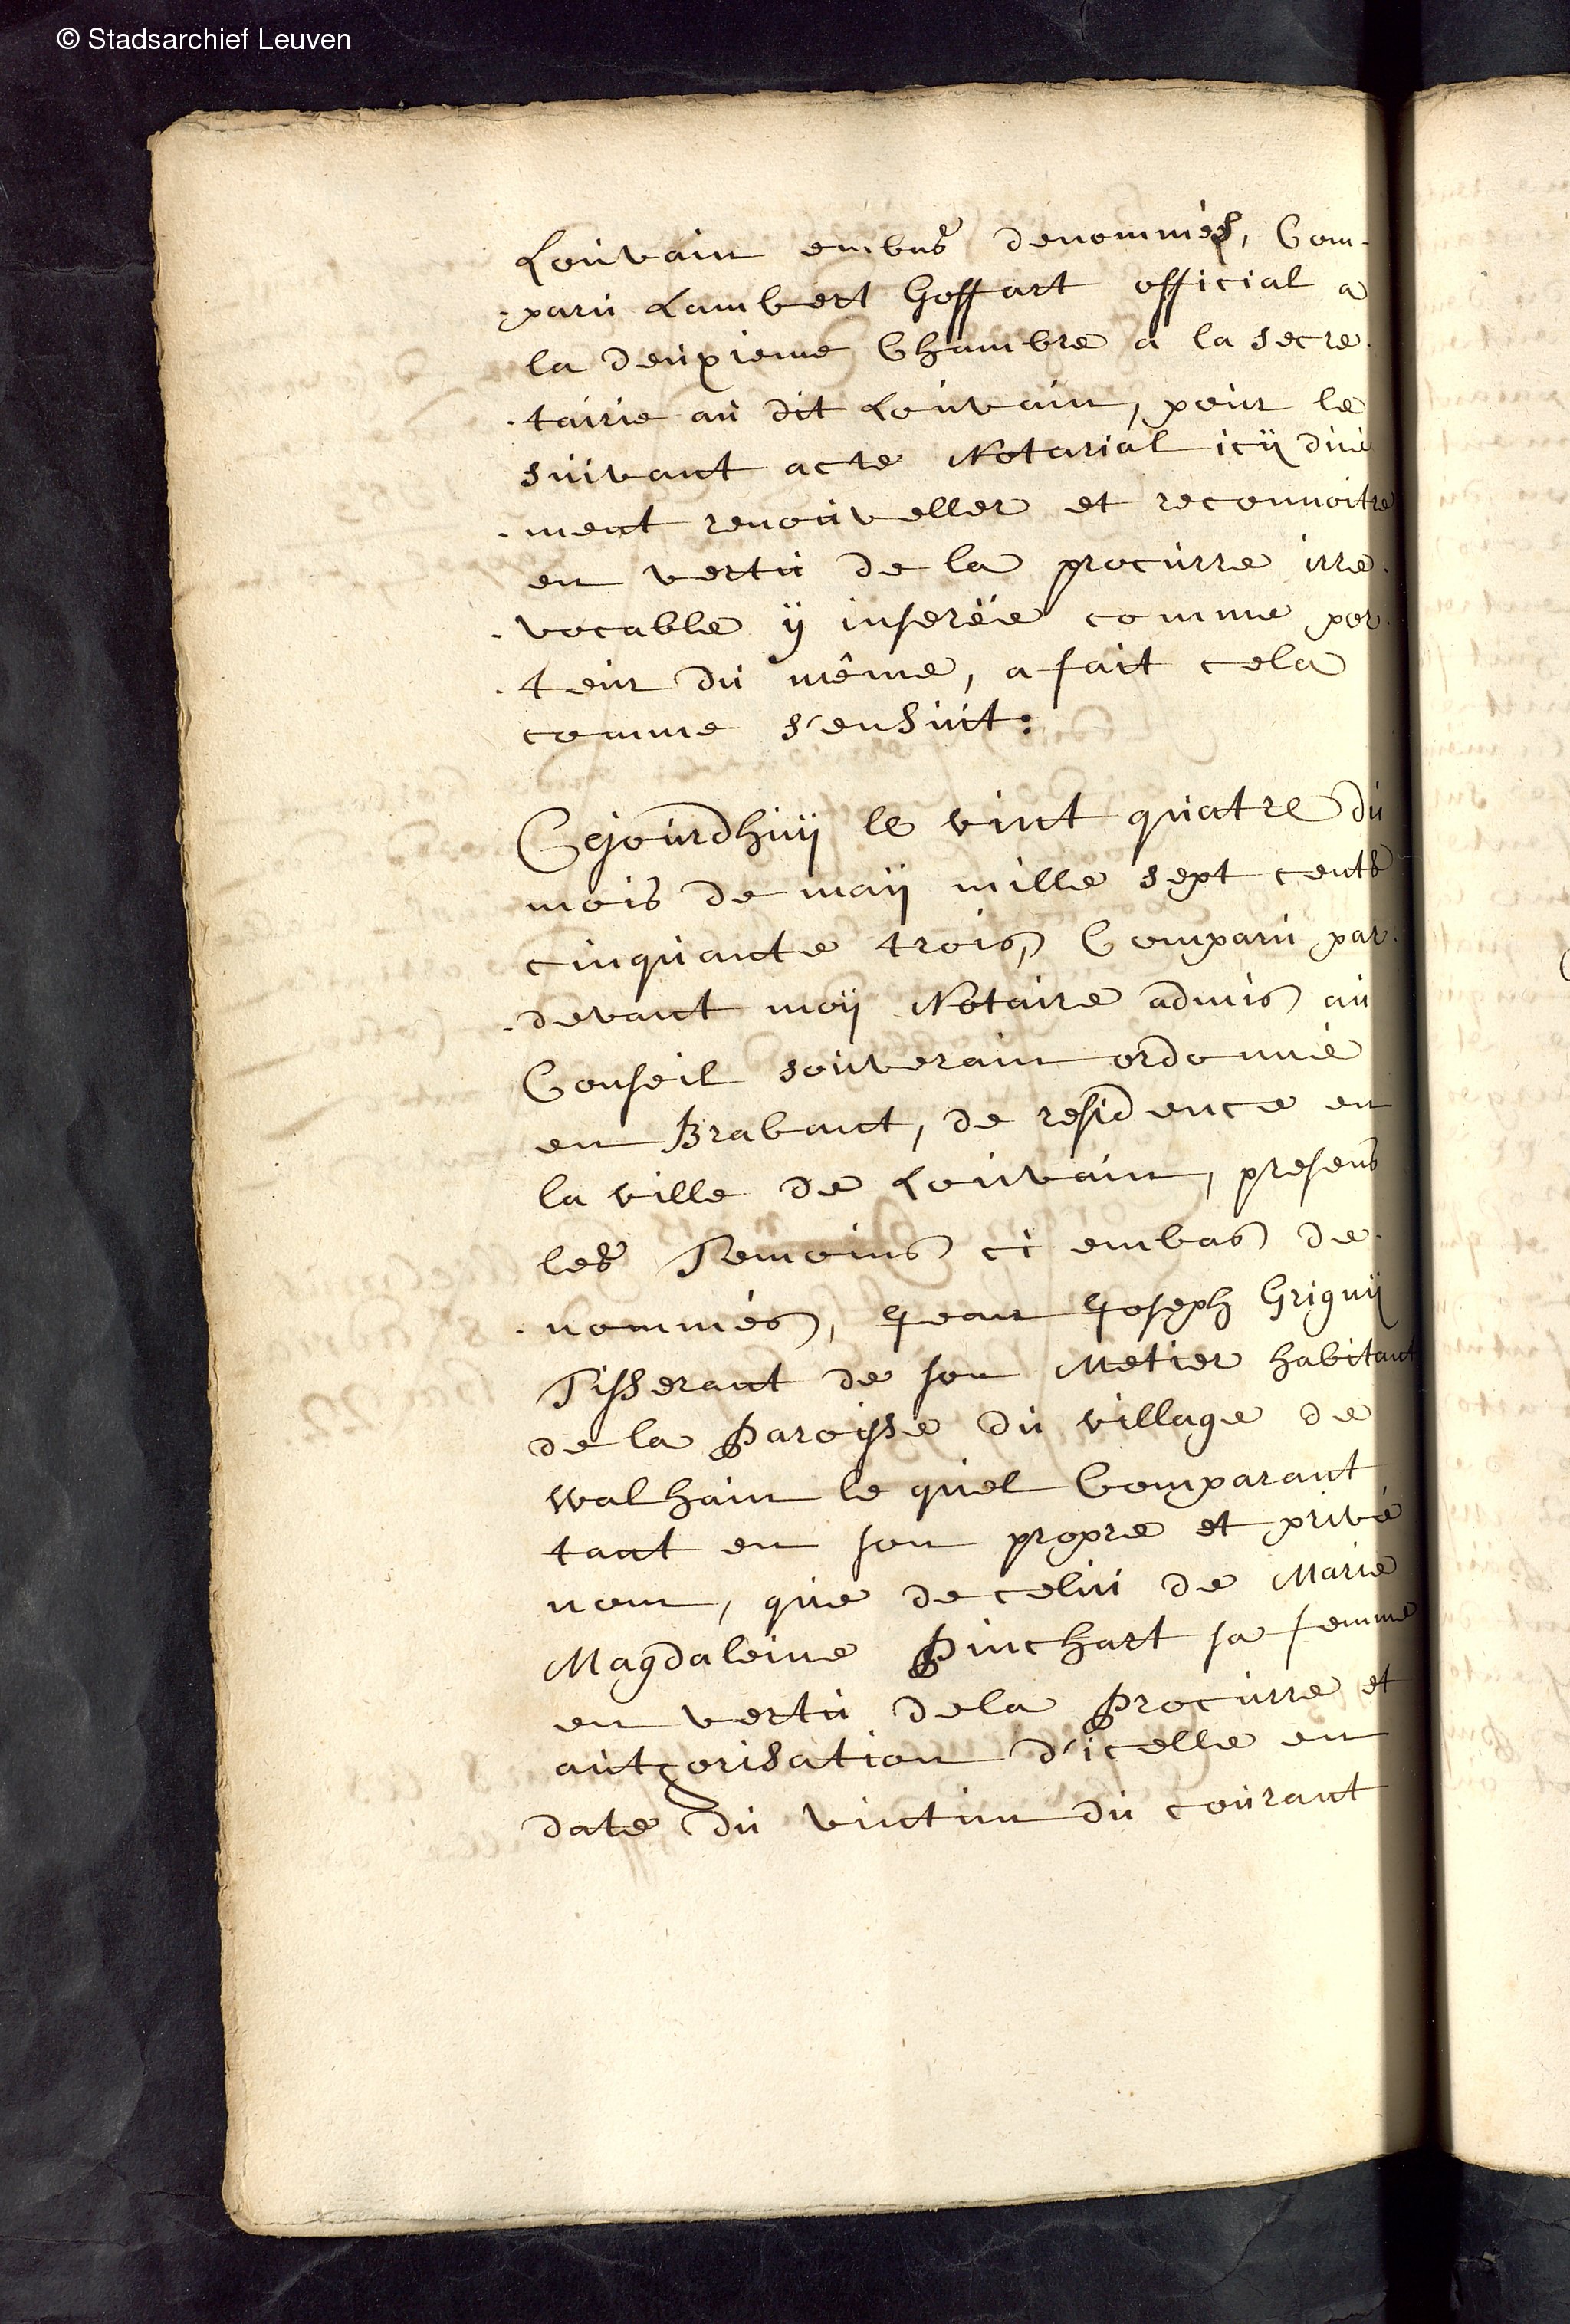 © Stadsarchief Leuven
Louvain embas denommés, Com-
-paru Lambert Goffart official a
la deuxieme Chambre a la secre-
-tairie au dit Louvain, pour le
suivant acte Notarial icÿ dué
-ment renouveller et reconnoitre
en vertu de la procurre irre-
-vocable ÿ inserëe comme por-
-teur du même, a fait cela
comme s'ensuit:
Cejourdhuÿ le vint quatre du
mois de maÿ mille sept cents
cinquante trois, Comparu par-
-devant moÿ Notaire admis au
Conseil souverain ordonné
en Brabant, de residence en
la ville de Louvain, presens
les Temoins ci embas de-
-nommés, Jean Joseph Grignÿ
Tisserant de son Metier habitant
de la Paroisse du village de
walhain le quel Comparant
tant en son propre et privé
nom, que de celui de Marie
Magdaleine Pinchart sa femme
en vertu dela Procurre et
authorisation d'icelle en
date du vintun du courant